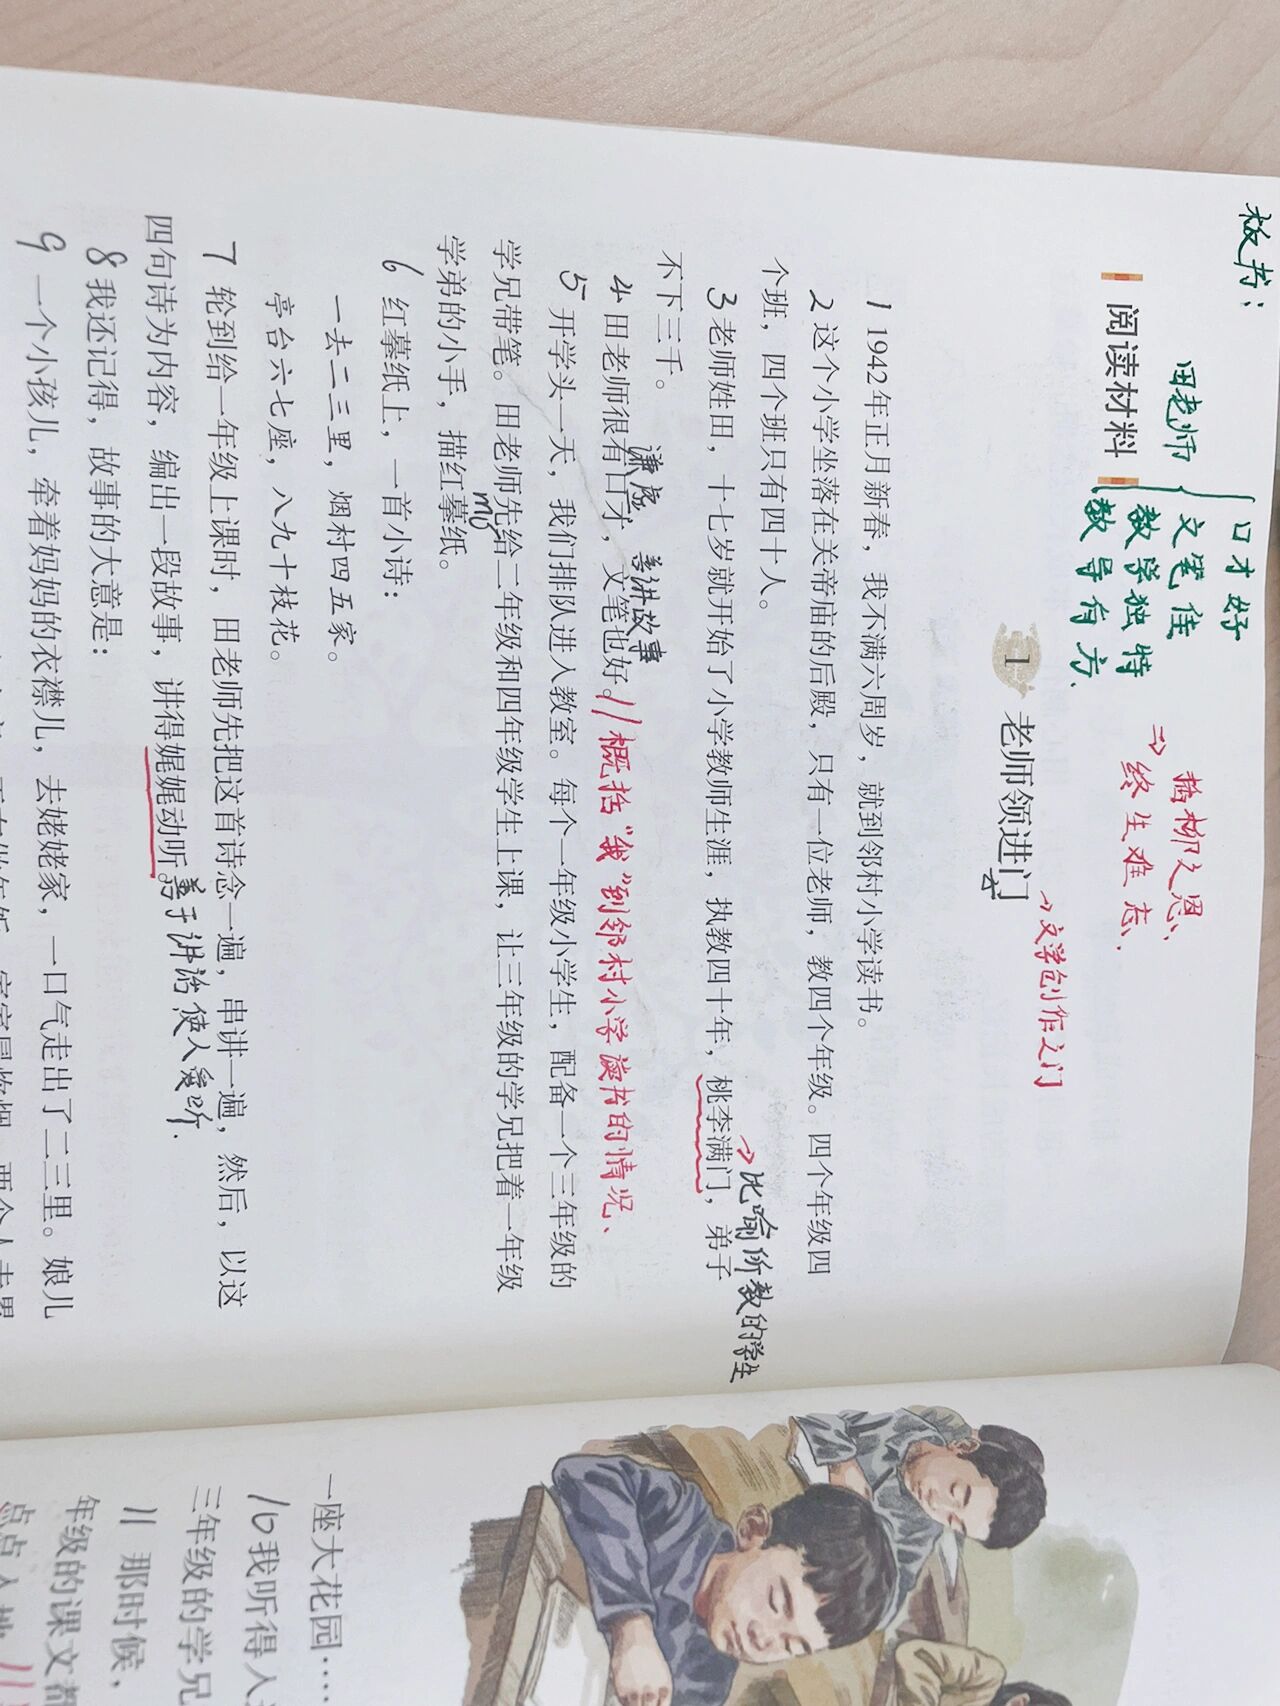 板书：
田老师
口才好
文笔佳
教学独特
教导有方、
插柳之恩、
⇒终生难忘、
阅读材料
1 老师领进门
→文学创作之门
1 1942年正月新春，我不满六周岁，就到邻村小学读书。
2 这个小学坐落在关帝庙的后殿，只有一位老师，教四个年级。四个年级四
个班，四个班只有四十人。
3 老师姓田，十七岁就开始了小学教师生涯，执教四十年，桃李满门，弟子
→比喻所教的学生
不下三千。
谦虚 善讲故事
4 田老师很有口才，文笔也好。//概括“我”到邻村小学读书的情况、
5 开学头一天，我们排队进入教室。每个一年级小学生，配备一个三年级的
学兄带笔。田老师先给二年级和四年级学生上课，让三年级的学兄把着一年级
学弟的小手，描红摹纸。
mó
6 红摹纸上，一首小诗：
一去二三里，烟村四五家。
亭台六七座，八九十枝花。
7 轮到给一年级上课时，田老师先把这首诗念一遍，串讲一遍，然后，以这
四句诗为内容，编出一段故事，讲得娓娓动听。善于讲话使人爱听.
8 我还记得，故事的大意是：
9 一个小孩儿，牵着妈妈的衣襟儿，去姥姥家，一口气走出了二三里。娘儿
一座大花园……
10 我听得入
三年级的学兄
11 那时候，
年级的课文都